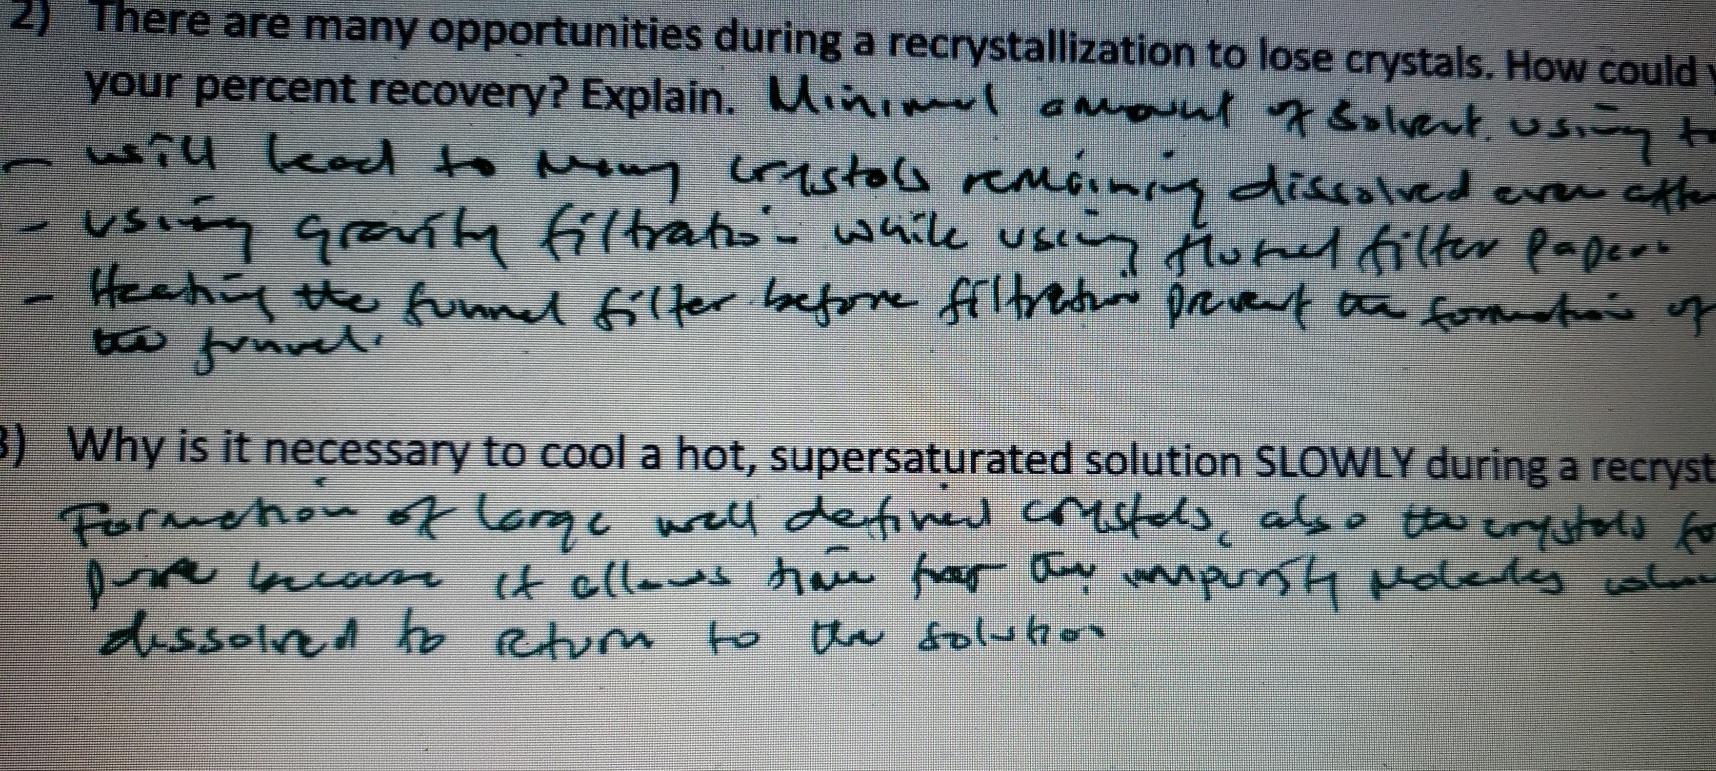 2) There are many opportunities during a recrystallization to lose crystals. How could
your percent recovery? Explain. Minimul amount of solvent. using
- will lead to many crystals remaining dissolved even after
- using gravity filtration - while using fluted filter paper.
- Heating the funnel filter before filtration prevent the formation of
the funnel.
3) Why is it necessary to cool a hot, supersaturated solution SLOWLY during a recryst
Formation of large well defined crystals, also the crystals
pure because it allows time for the impurity molecules
dissolved to return to the solution